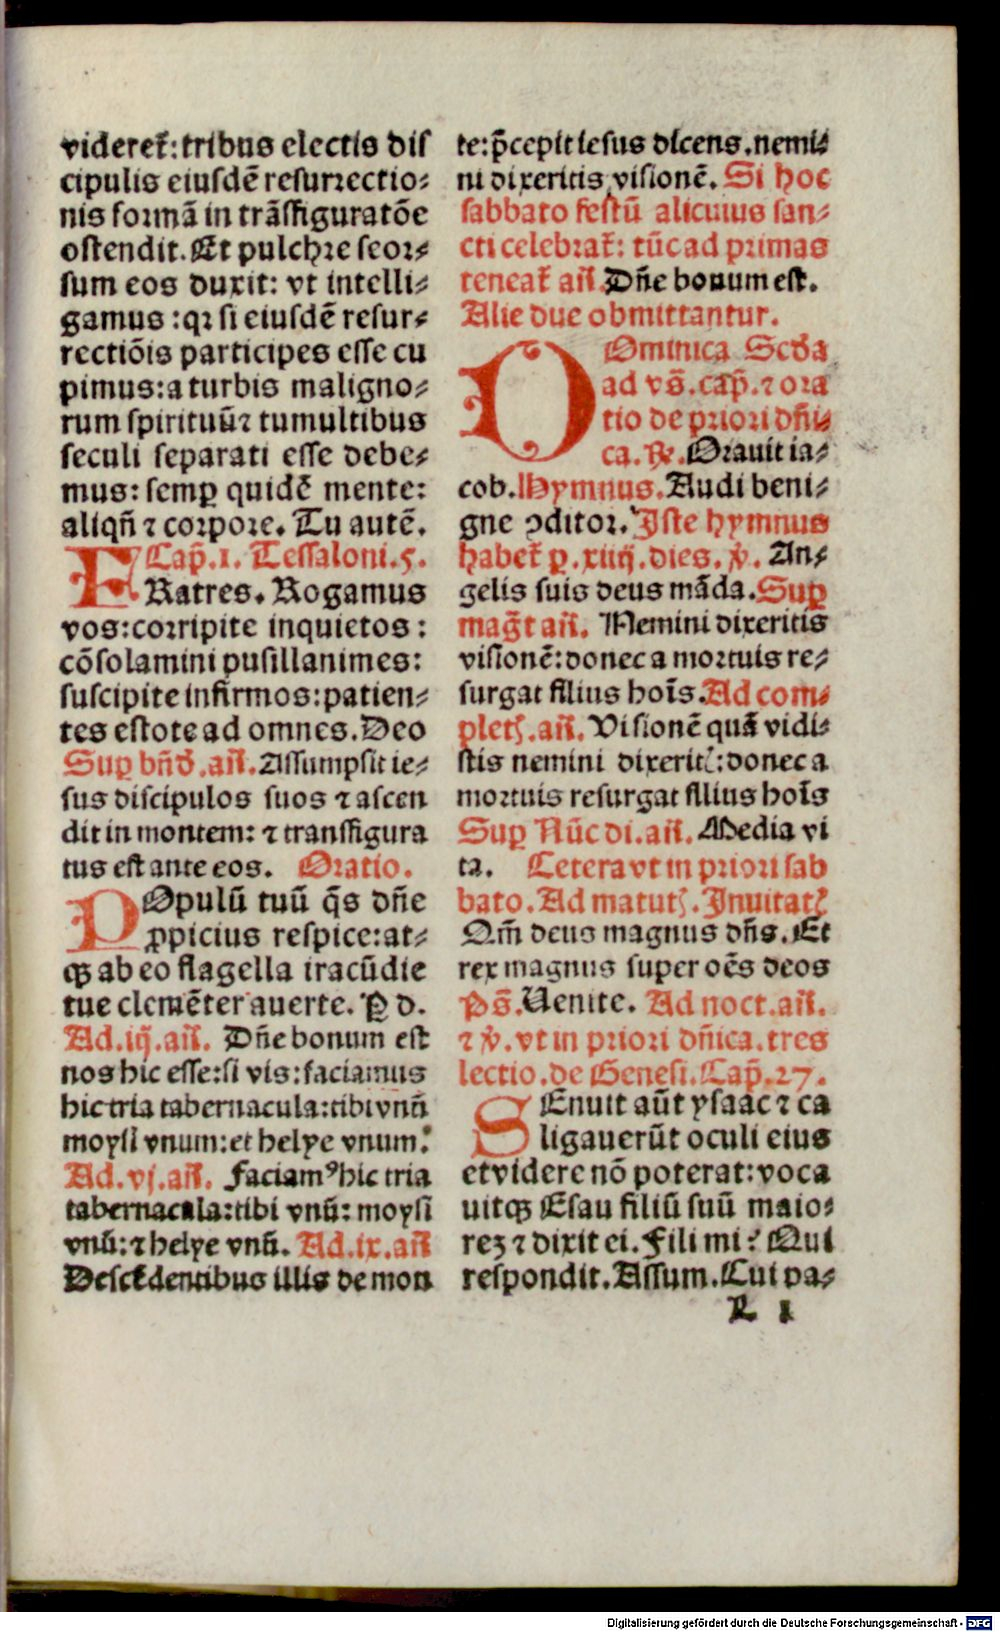 videret̃: tribus electis dis
cipulis eiusdē resurrectio⸗
nis formā in trāsfiguratōe
ostendit. Et pulchre seor⸗
sum eos duxit: vt intelli⸗
gamus: qꝛ si eiusdē resur⸗
rectiōis participes esse cu
pimus: a turbis maligno⸗
rum spirituū ⁊ tumultibus
seculi separati esse debe⸗
mus: semꝑ quidē mente:
aliqñ ⁊ corpore. Tu autē.
Cap̃. 1. Tessaloni. 5.
FRatres. Rogamus
vos: corripite inquietos:
cōsolamini pusillanimes:
suscipite infirmos: patien⸗
tes estote ad omnes. Deo
Suꝑ bñd̄. añ. Assumpsit ie⸗
sus discipulos suos ⁊ ascen
dit in montem: ⁊ transfigura
tus est ante eos. Oratio.
POpulū tuū q̄s dñe
ꝓpicius respice: at⸗
qꝫ ab eo flagella iracūdie
tue clemēter auerte. Ꝑ d.
Ad. iij. añ. Dñe bonum est
nos hic esse: si vis: faciamus
hic tria tabernacula: tibi vnū
moysi vnum: et helye vnum.
Ad. vj. añ. Faciamꝰ hic tria
tabernacula: tibi vnū: moysi
vnū: ⁊ helye vnū. Ad. ix. añ
Descēdentibus illis de mon
te: p̄cepit iesus dicens. nemi⸗
ni dixeritis visionē. Si hoc
sabbato festū alicuius san⸗
cti celebrat̃: tūc ad primas
teneat̃ añ. Dñe bonum est.
Alie due obmittantur.
DOminica Scd̄a
ad vs̄. cap̃. ⁊ ora
tio de priori dñi⸗
ca. ℟. Orauit ia⸗
cob. Hymnus. Audi beni⸗
gne ꝯditor. Iste hymnus
habet̃ ꝑ. xiiij. dies. ℣. An⸗
gelis suis deus māda. Suꝑ
mag̃t añ. Nemini dixeritis
visionē: donec a mortuis re⸗
surgat filius hoīs. Ad com⸗
pletꝭ. añ. Visionē quā vidi⸗
stis nemini dixeritꝭ: donec a
mortuis resurgat filius hoīs
Suꝑ Nūc di. añ. Media vi
ta. Cetera vt in priori sab
bato. Ad matutꝭ. Inuitatꝭ
Qm̄ deus magnus dñs. Et
rex magnus super oēs deos
Ps̄. Uenite. Ad noct. añ.
⁊ ℣. vt in priori dñica. tres
lectio. de Genesi. Cap̃. 27.
SEnuit aūt ysaac ⁊ ca
ligauerūt oculi eius
et videre nō poterat: voca
uitqꝫ Esau filiū suū maio⸗
reꝫ ⁊ dixit ei. Fili mi? Qui
respondit. Assum. Cui pa⸗
R 1
Digitalisierung gefördert durch die Deutsche Forschungsgemeinschaft - DFG